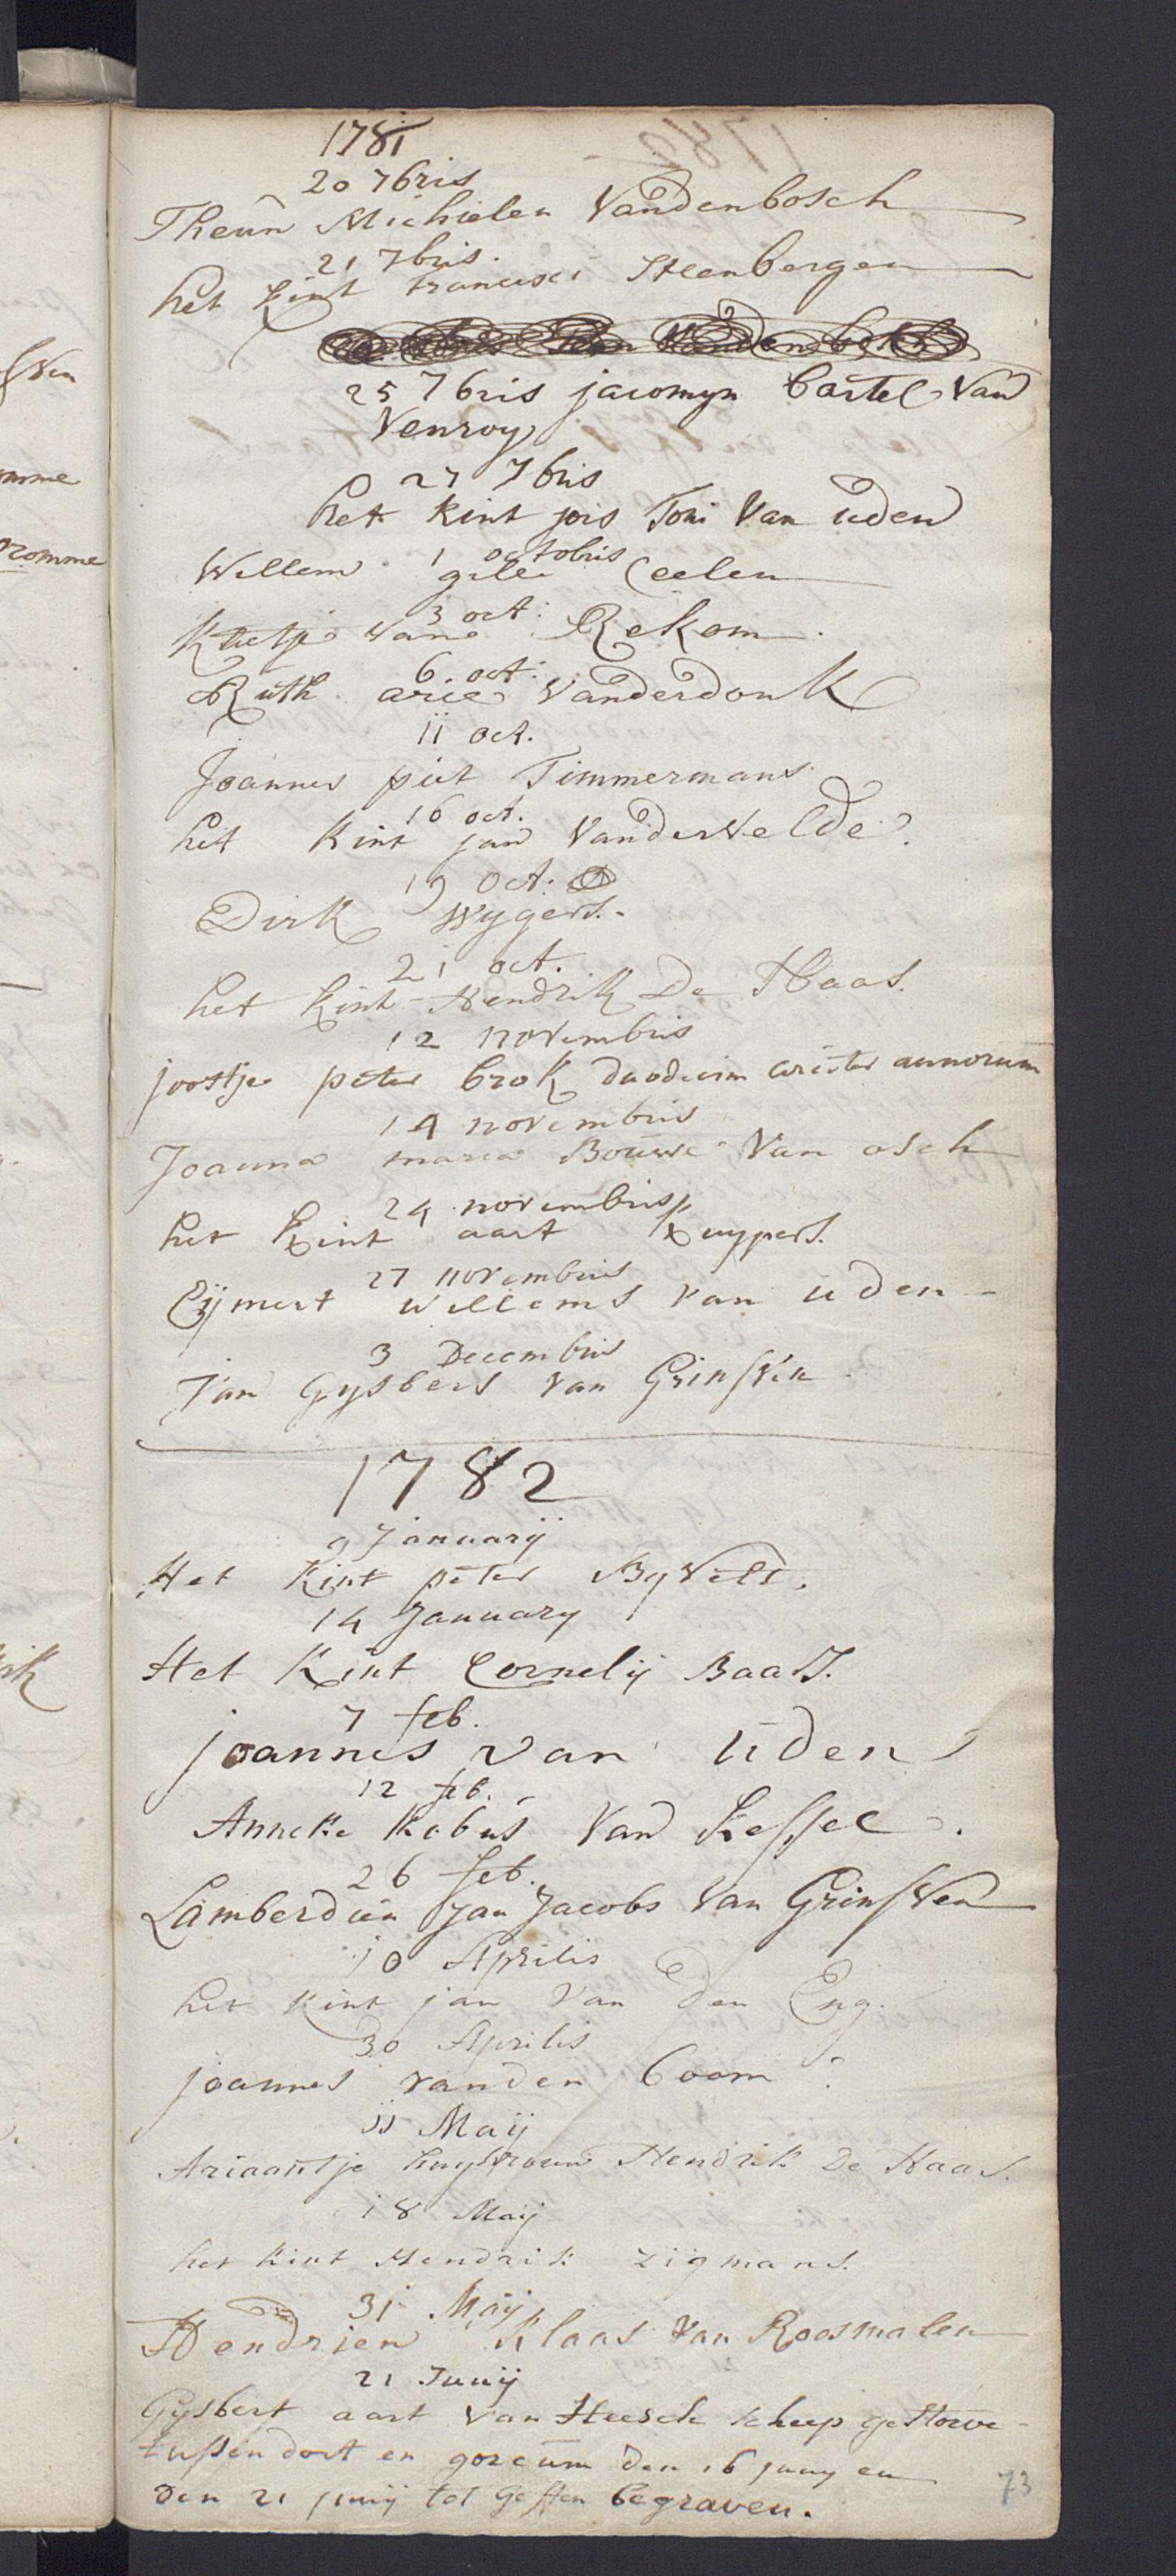 1781
20 7bris
Theun Michielen Vandenbosch
21 7bris.
het kint francisci Steenbergen
25 7bris jacomyn bartel Van
Venroy
27 7bris
het kint jois Toni Van uden
1 octobris
Willem gile Ceelen
3 oct:
van Rekom.
6 oct:
Ruth arie Vanderdonk
11 oct.
Joannes piet Timmermans
16 oct.
het kint jan VanderVelde
19 oct:
Dirk Wygers.
21 oct.
het kint Hendrik De Haas.
12 novembris
joostje peter brok duodecim annorum
14 novembris
Joanna maria Bouwe Van osch
24 novembris
het kint aart Kuypers.
27 novembris
Eijmert willems van uden
3 Decembris
Jan Gysbers van Grinsven
1782
9 Januarij
Het kint peter ByVelt.
14 January
Het Kint Cornelij Baats.
7 feb.
joannes van uden
12 feb.
Anneke Kobus Van Kessel.
26 feb.
Lamberdien Jan Jacobs Van Grinsven
10 Aprilis
het kint jan Van Den Eng.
30 Aprilis
joannes vanden boom
11 Maij
Ariaantje huysvrouw Hendrik De Haas.
18 Maij
het kint Hendrik zigmans.
31 Maij
Hendrien Klaas Van Roosmalen
21 Junij
Gysbert aart van Heesch scheep gestorve
tussen dort en gorcum den 16 juny en
den 21 junij tot Geffen begraven.
73